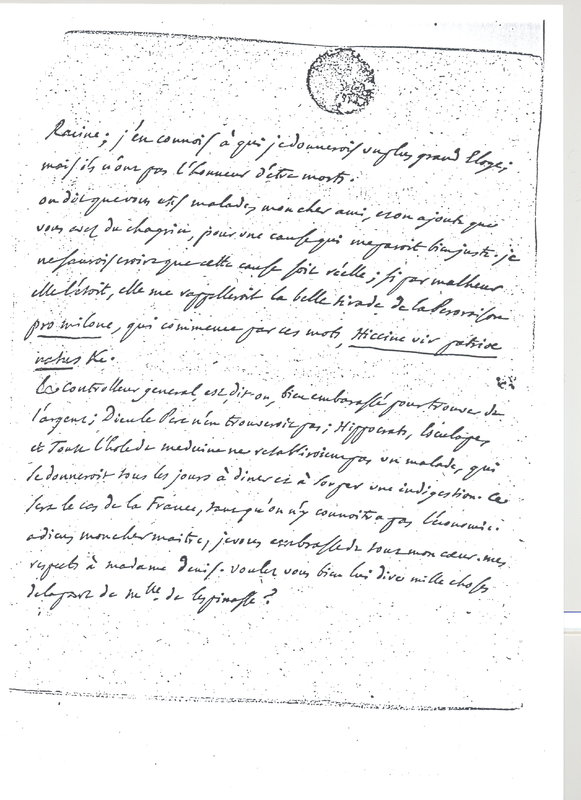 Racine; j'en connois à qui je donnerois un plus grand Eloge;
mais ils n'ont pas l'honneur d'être morts.
on dit que vous etes malade, mon cher ami, et on ajoute que
vous avez du chagrin, pour une cause qui me paroit bien juste. je
ne saurois croire que cette cause soit réelle; si par malheur
elle l'étoit, elle me rappelleroit la belle tirade de la Peroraison
pro milone, qui commence par ces mots, Hiccine vir patriae
natus &c.
Le Controlleur general, est dit on, bien embarassé pour trouver de
l'argent; Dieu le Pere n'en trouveroit pas; Hippocrate, Esculape,
et Toute l'Ecole de medecine ne retabliroient pas un malade, qui
se donneroit tous les jours à diner et à souper une indigestion. Ce
sera le cas de la France, tant qu'on n'y connoitra pas l'économie.
adieu mon cher maitre, je vous embrasse de tout mon cœur. mes
respects à madame Denis. voulez vous bien lui dire mille choses
de la part de Mlle de Lespinasse?